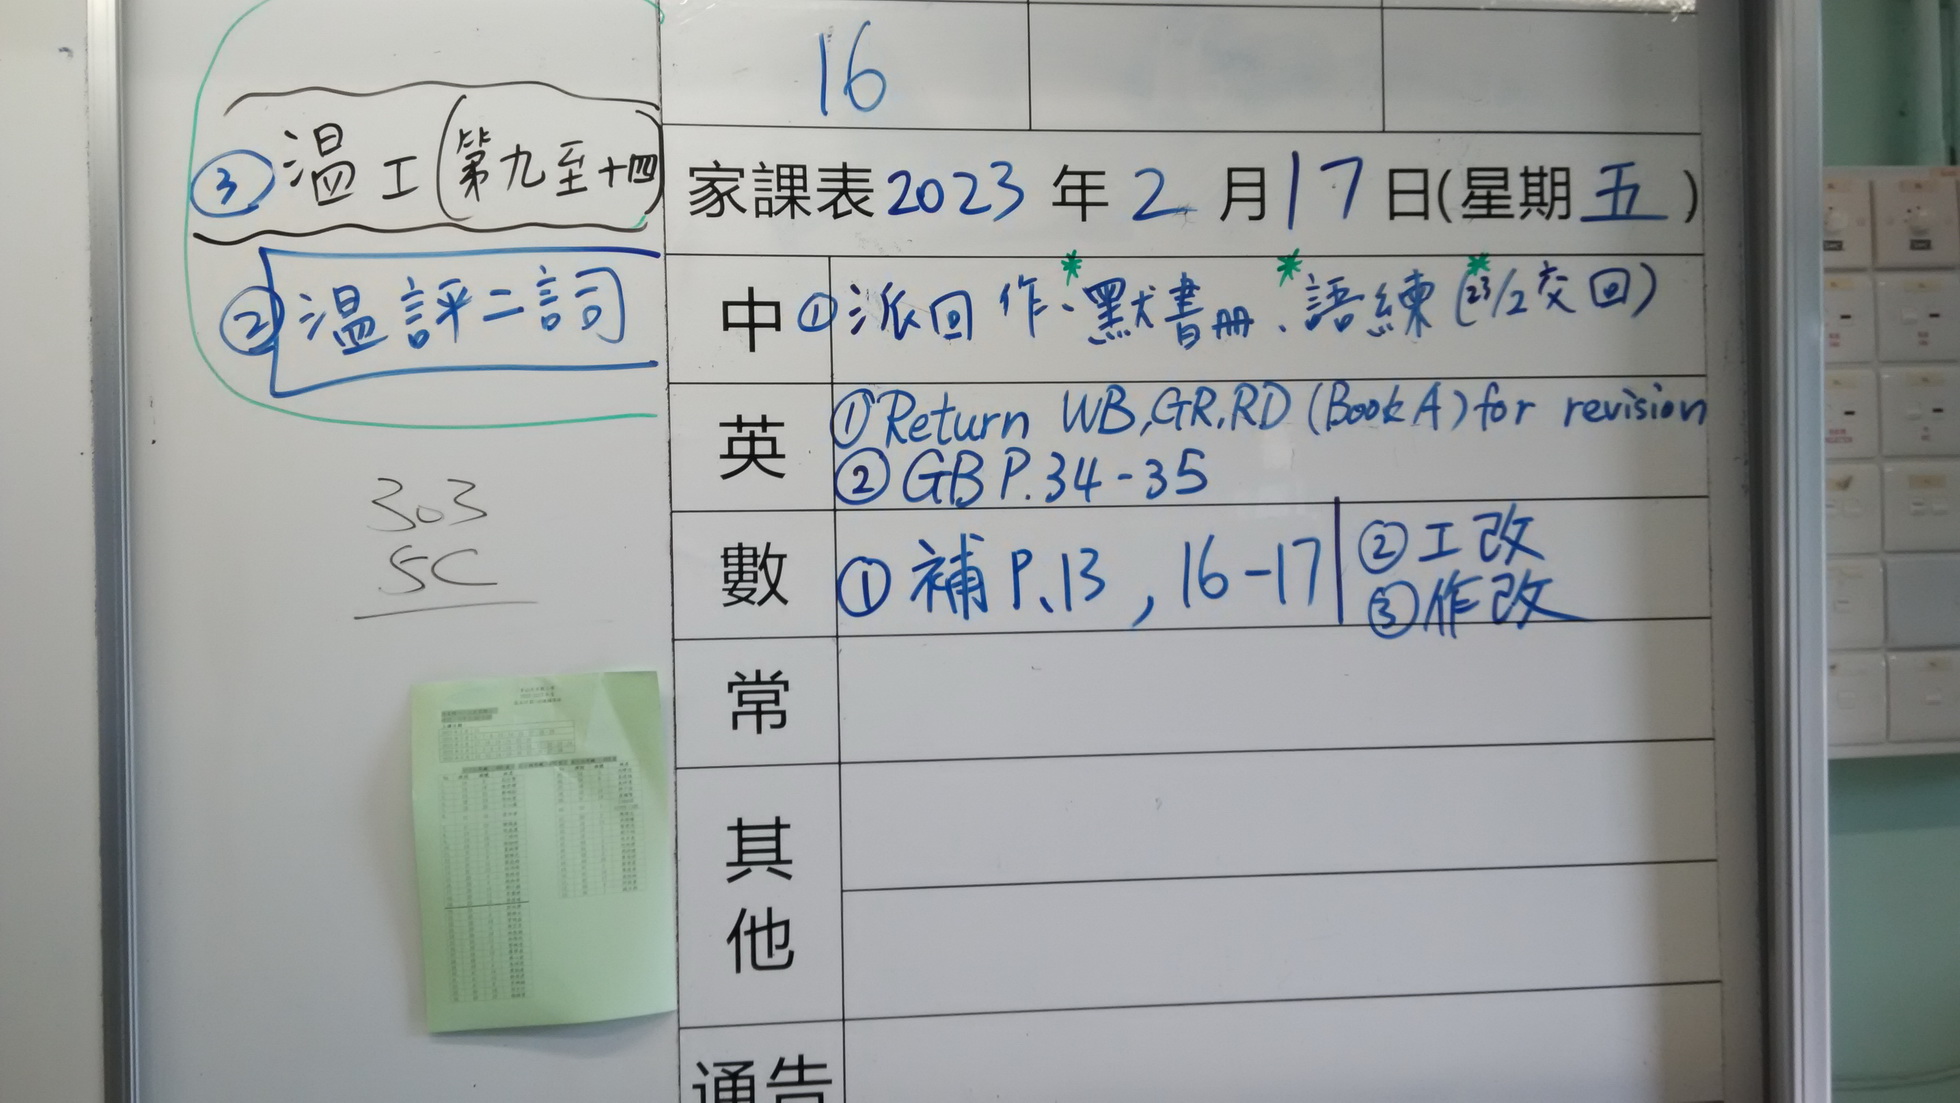 16
家課表2023年2月17日(星期五)
③溫工(第九至十四)
②溫評二詞
中 ①派回作、默書冊、語練(23/2交回)
英 ①Return WB,GR,RD (Book A) for revision
②GB P.34-35
數 ①補P.13, 16-17 ②工改
③作改
303
5C
常
其他
通告